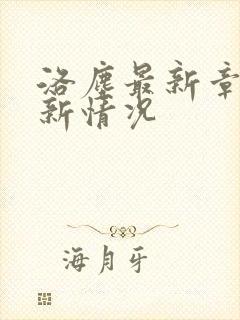 洛尘最新章
新情况
海月牙